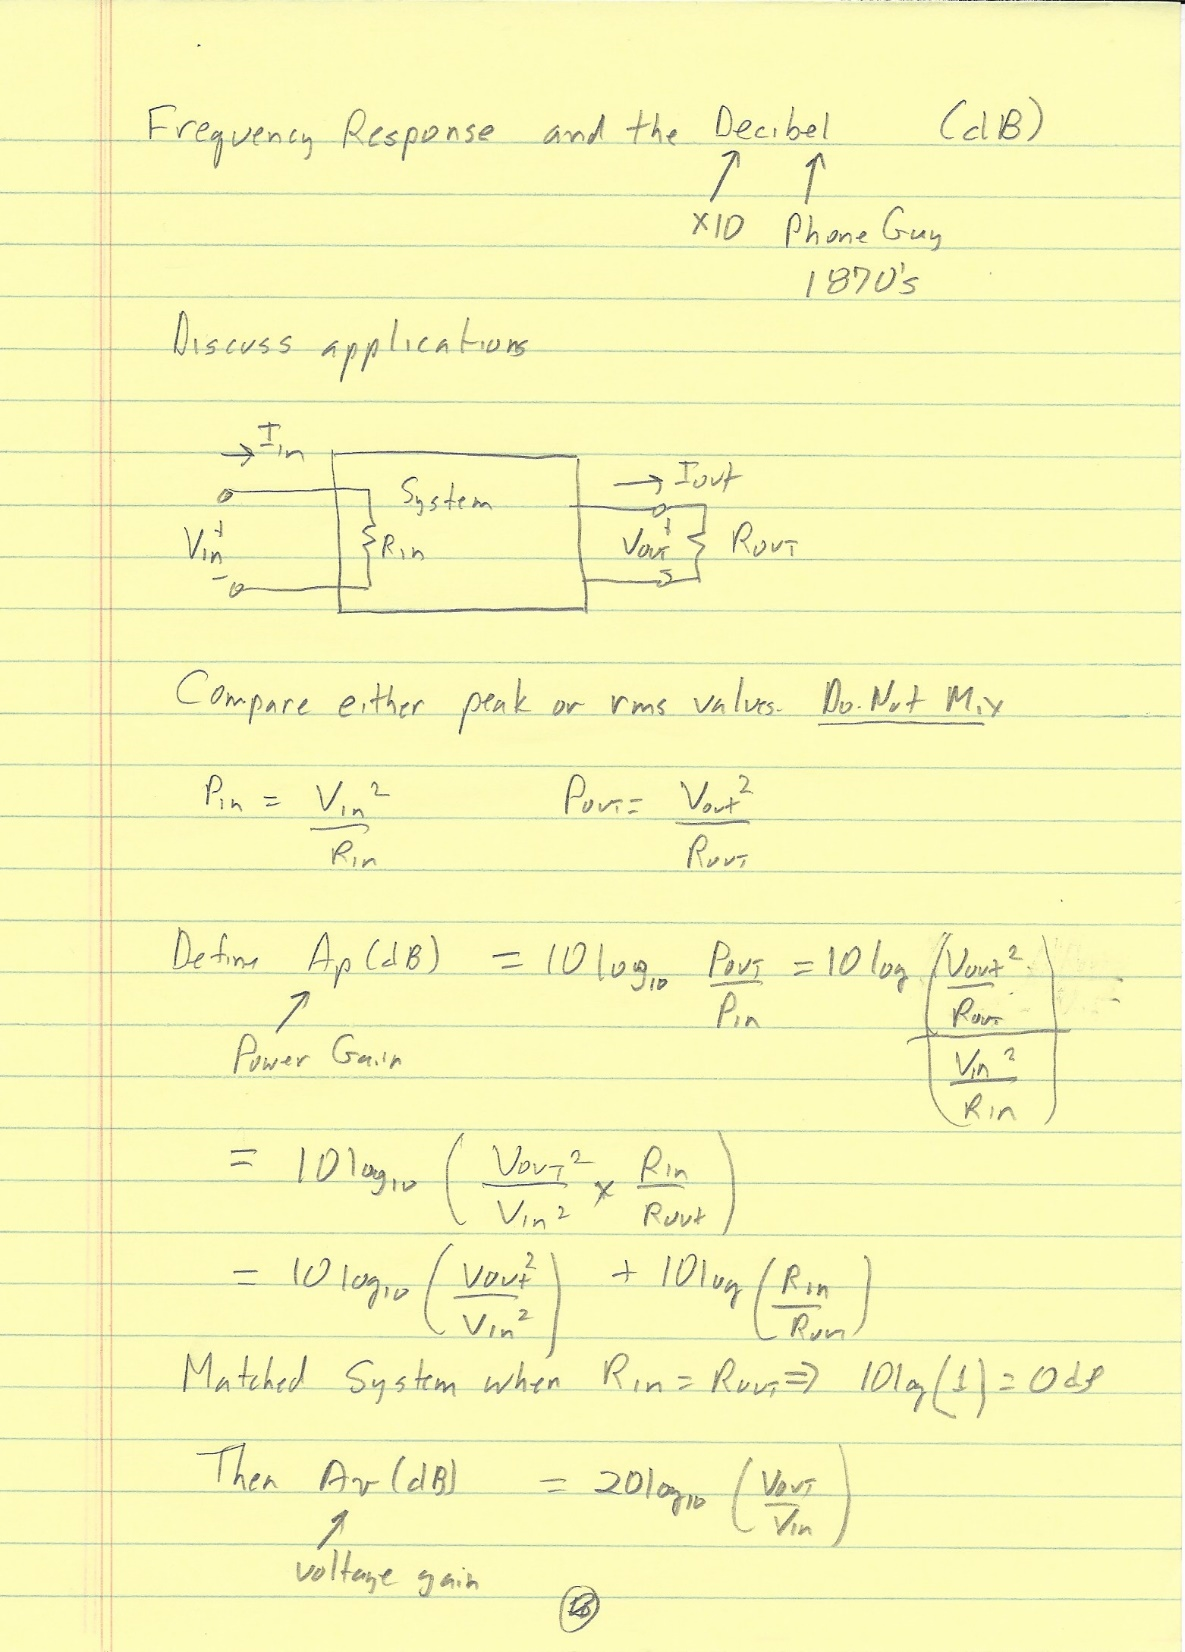 Frequency Response and the Decibel (dB)
x10 Phone Guy
1870's
Discuss applications
Iin
System
Iout
Vin + -
Rin
Vout +
ROUT
Compare either peak or rms values. Do Not Mix
Pin = Vin² / Rin POUT = Vout² / ROUT
Define Ap (dB) = 10 log₁₀ POUT / Pin = 10 log ((Vout² / Rout) / (Vin² / Rin)) =
Power Gain
= 10 log₁₀ (VOUT² / Vin² x Rin / Rout)
= 10 log₁₀ (Vout² / Vin²) + 10 log (Rin / Rout)
Matched System when Rin = ROUT ⇒ 10 log (1) = 0 dB
Then Av (dB) = 20 log₁₀ (VOUT / Vin)
voltage gain